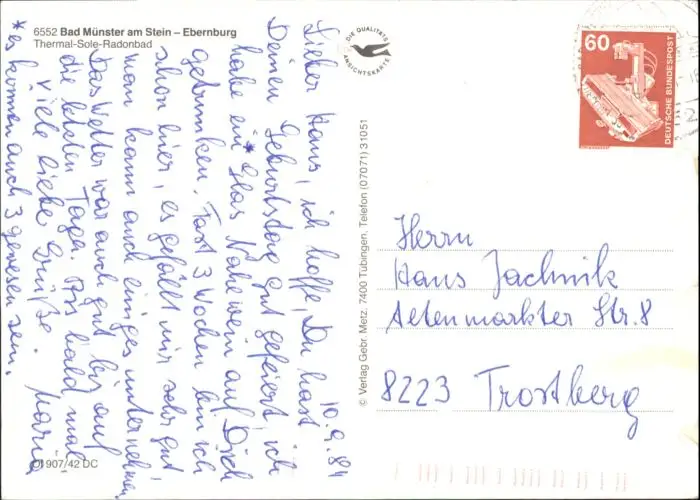 6552 Bad Münster am Stein – Ebernburg
Thermal-Sole-Radonbad
DIE QUALITÄTS
ANSICHTSKARTE
60
DEUTSCHE BUNDESPOST
10.9.84
Lieber Hans, ich hoffe, Du hast
Deinen Geburtstag gut gefeiert, ich
habe ein* Glas Nahewein auf Dich
getrunken. Fast 3 Wochen bin ich
schon hier, es gefällt mir sehr gut
man kann auch einiges unternehmen,
Das Wetter war auch gut bis auf
die letzten Tage. Bis bald mal
viele liebe Grüße Maria
*es können auch 3 gewesen sein.
© Verlag Gebr. Metz, 7400 Tübingen, Telefon (07071) 31051
Herrn
Hans Jachnik
Altenmarkter Str. 8
8223 Trostberg
1907/42 DC